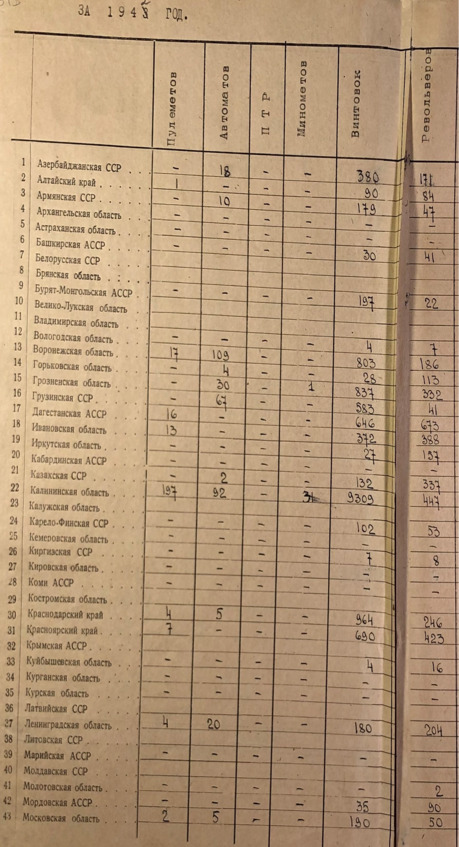 ЗА 1942 ГОД.
Пулеметов Автоматов ПТР Минометов Винтовок Револьверов
1 Азербайджанская ССР – 18 – – 380 171
2 Алтайский край 1 – – – 90 84
3 Армянская ССР – 10 – – 179 47
4 Архангельская область – – – – – –
5 Астраханская область – – – – – –
6 Башкирская АССР – – – – 30 41
7 Белорусская ССР
8 Брянская область
9 Бурят-Монгольская АССР – – – – 197 22
10 Велико-Лукская область
11 Владимирская область
12 Вологодская область – – – – 4 7
13 Воронежская область 17 109 – – 803 186
14 Горьковская область – 4 – – 28 113
15 Грозненская область – 30 – 1 837 332
16 Грузинская ССР – 67 – – 583 41
17 Дагестанская АССР 16 – – – 646 673
18 Ивановская область 13 – – – 372 388
19 Иркутская область – – – – 27 157
20 Кабардинская АССР – – – – – –
21 Казахская ССР – 2 – – 132 337
22 Калининская область 197 92 – 9309 447
23 Калужская область
24 Карело-Финская ССР – – – – 102 53
25 Кемеровская область – – – – – –
26 Киргизская ССР – – – – 7 8
27 Кировская область – – – – – –
28 Коми АССР – – – – – –
29 Костромская область
30 Краснодарский край 4 5 – – 964 246
31 Красноярский край 7 – – – 690 423
32 Крымская АССР
33 Куйбышевская область – – – – 4 16
34 Курганская область – – – – – –
35 Курская область – – – – – –
36 Латвийская ССР
37 Ленинградская область 4 20 – – 180 204
38 Литовская ССР
39 Марийская АССР – – – – – –
40 Молдавская ССР
41 Молотовская область – – – – – 2
42 Мордовская АССР – – – – 35 90
43 Московская область 2 5 – – 190 50